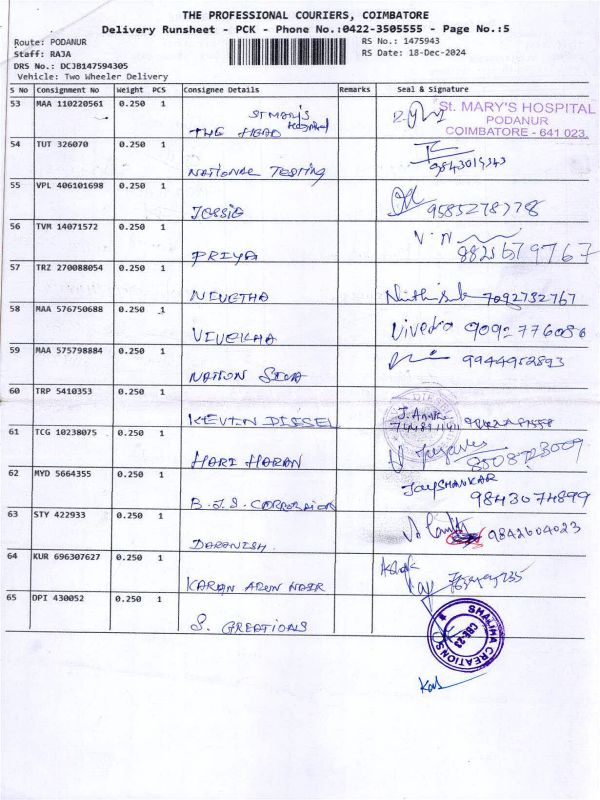 THE PROFESSIONAL COURIERS, COIMBATORE
Delivery Runsheet - PCK - Phone No.:0422-3505555 - Page No.:5
Route: PODANUR
RS No.: 1475943
Staff: RAJA
RS Date: 18-Dec-2024
DRS No.: DCJB147594305
Vehicle: Two Wheeler Delivery
S No Consignment No Weight PCS Consignee Details Remarks Seal & Signature
53 MAA 110220561 0.250 1
ST MARY'S Hospital
THE HEAD
St. MARY'S HOSPITAL
PODANUR
COIMBATORE - 641 023.
54 TUT 326070 0.250 1
NATIONAL TESTING
55 VPL 406101698 0.250 1
JESSIE 9585278778
56 TVM 14071572 0.250 1
PRIYA
57 TRZ 270088054 0.250 1
NIVETHA 7092732767
58 MAA 576750688 0.250 1
VIVEKHA 9092776086
59 MAA 575798884 0.250 1
NATION SIVA 9944952893
60 TRP 5410353 0.250 1
KEVIN DIESEL
61 TCG 10238075 0.250 1
HARI HARAN
62 MYD 5664355 0.250 1
JAYSHANKAR
B.J.S. CORPORATION 9843074899
63 STY 422933 0.250 1
9842604023
DARANISH.
64 KUR 696307627 0.250 1
KARAN ARUN NAIR
65 DPI 430052 0.250 1
S. CREATIONS
SHALIMA CREATIONS
CBE-23